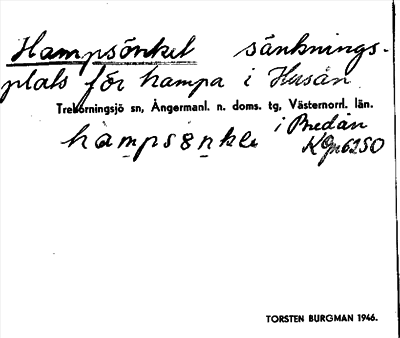 Hampsönket sänknings-
plats för hampa i Husån
Trehörningsjö sn, Ångermanl. n. doms. tg, Västernorrl. län.
i Bredån
hampsönkle KGn6250
TORSTEN BURGMAN 1946.